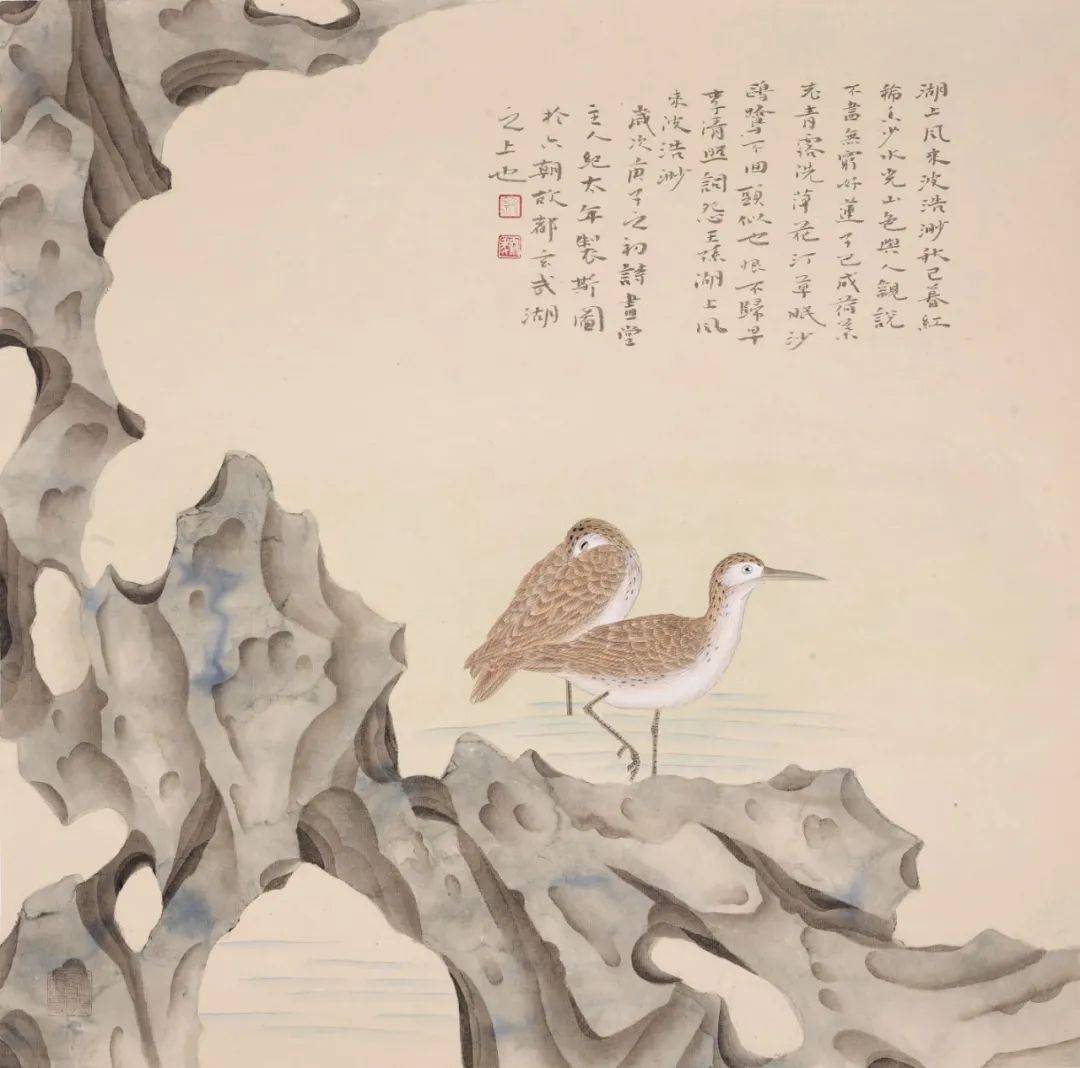 湖上風來波浩渺秋已暮紅
稀香少水光山色與人親說
不盡無窮好蓮子已成荷葉
老青露洗蘋花汀草眠沙
鷗鷺不回頭似也恨不歸早
李清照詞怨王孫湖上風
來波浩渺
歲次庚子之初詩畫堂
主人紀太年製斯圖
於六朝故都玄武湖
之上也